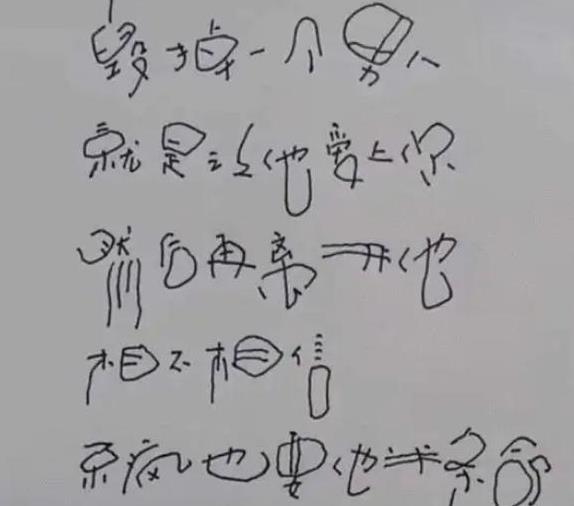 毁掉一个男人
就是让他爱上你
然后再离开他
相不相信
疯也要他半条命